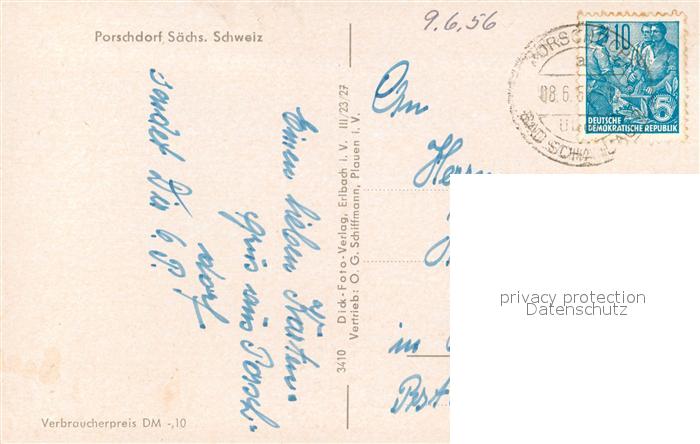 Porschdorf, Sächs. Schweiz
9.6.56
10
5
DEUTSCHE
DEMOKRATISCHE REPUBLIK
08.6.5
BAD SCHANDAU
Einen lieben
Karten-
gruß aus Porsch-
dorf
sendet Dir
3410 Dick-Foto-Verlag, Erlbach i. V. III/23/27
Vertrieb: O. G. Schiffmann, Plauen i. V.
An
Herrn
in
privacy protection
Datenschutz
Verbraucherpreis DM -,10